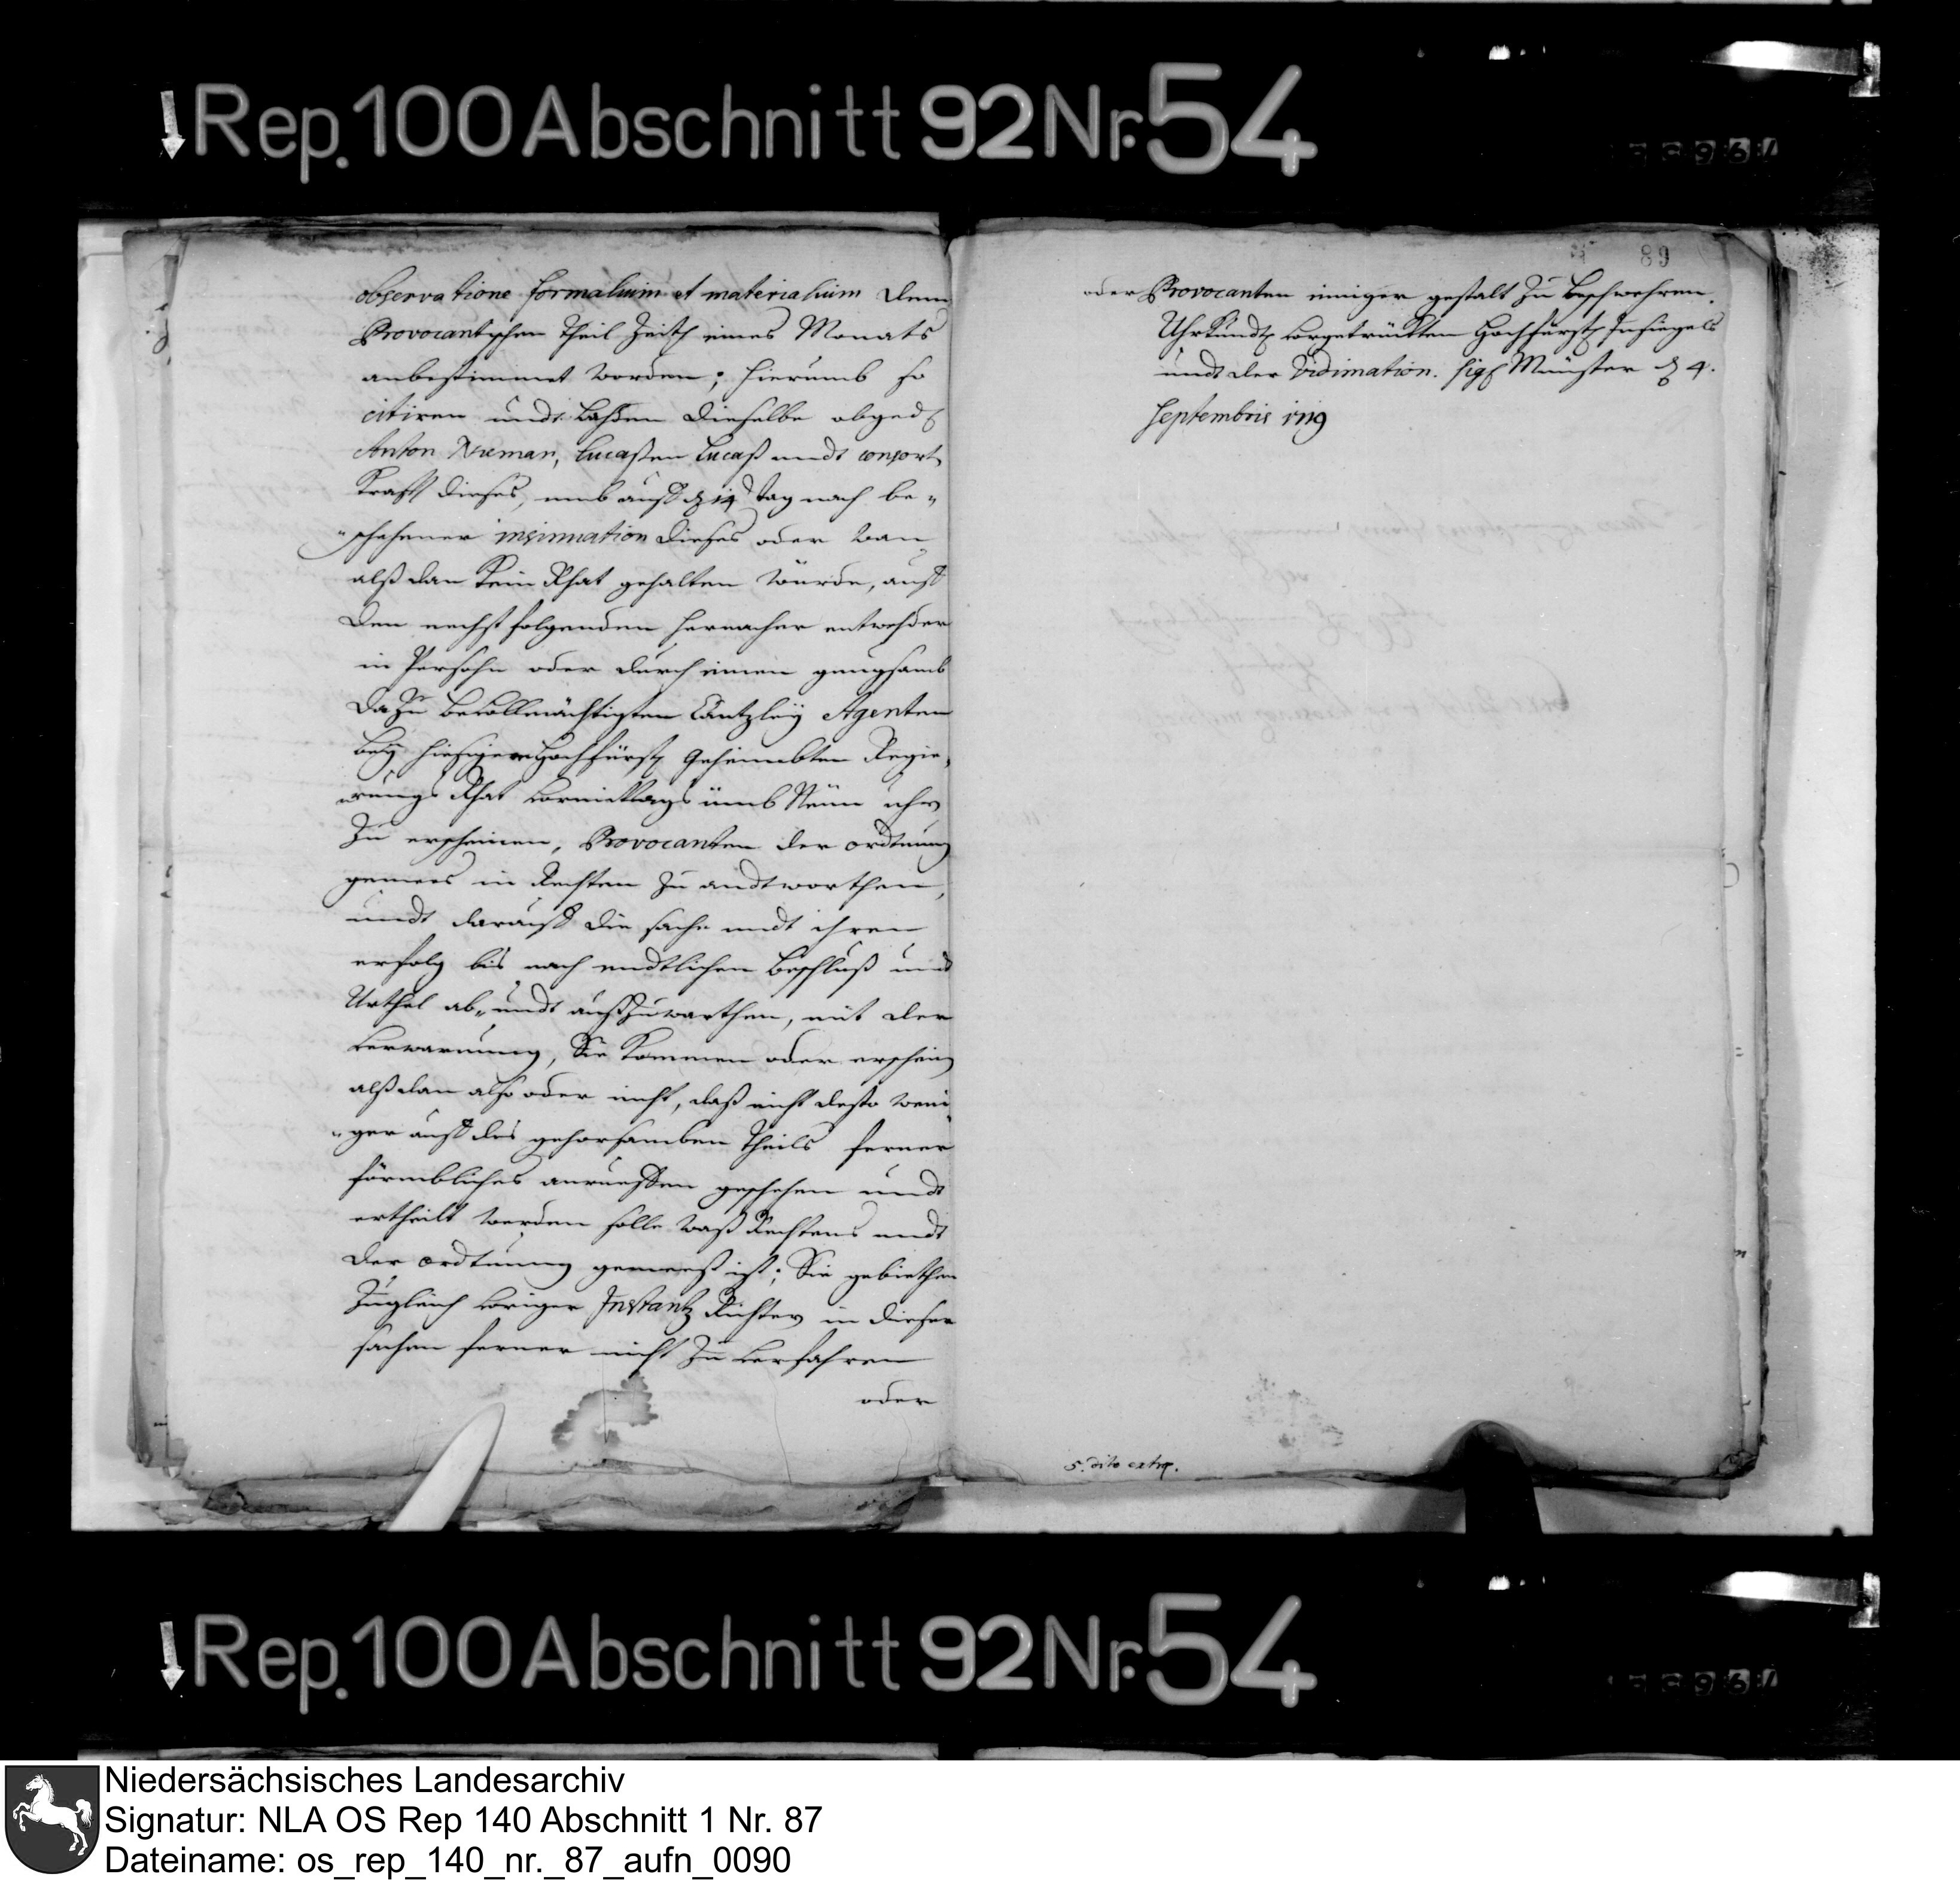 Rep. 100 Abschnitt 92 Nr. 54
observatione formalium et materialium dem
Provocantischen Theil Zeith eines Monats
anbestimmet worden; hierumb so
citiren undt laßen dieselbe obged.
Anton Nieman, Lucaßen Lucaß undt consort.
Krafft dieses, umb auff d. 14 tag nach be-
schehener insinuation dieses oder wan
alß dan kein Rhat gehalten würde, auff
den nechst folgenden hernacher entweder
in Persohn oder durch einen gnugsamb
dazu bevollmächtigten Cantzley Agenten
bey hiesigem Hochfürstl. Geheimbten Regie-
rungs Rhat vormittags umb Neun uhr
zu erscheinen, Provocanten der ordtnung
gemees in Rechten zu andtworthen,
undt darauff die sache undt ihren
erfolg bis nach endtlichen beschluß und
Urthel ab- undt außzuwarthen, mit der
verwarnung, Sie kommen oder erschein
alß dan also oder nicht, daß nicht desto weni-
ger auff des gehorsamben Theils ferner
förmbliches anrueffen geschehen undt
ertheilt werden solle waß Rechtens undt
der ordtnung gemeeß ist; Sie gebiethen
Zugleich voriger Instantz Richter in dieser
sachen ferner nicht zu verfahren
oder
89
oder Provocanten einiger gestalt zu beschwehren.
Uhrkundt vorgetrückten Hochfürstl. Insiegels
undt der Vidimation. Sigl. Münster d. 4.
Septembris 1719
5. dito extra.
Rep. 100 Abschnitt 92 Nr. 54
Niedersächsisches Landesarchiv
Signatur: NLA OS Rep 140 Abschnitt 1 Nr. 87
Dateiname: os_rep_140_nr._87_aufn_0090